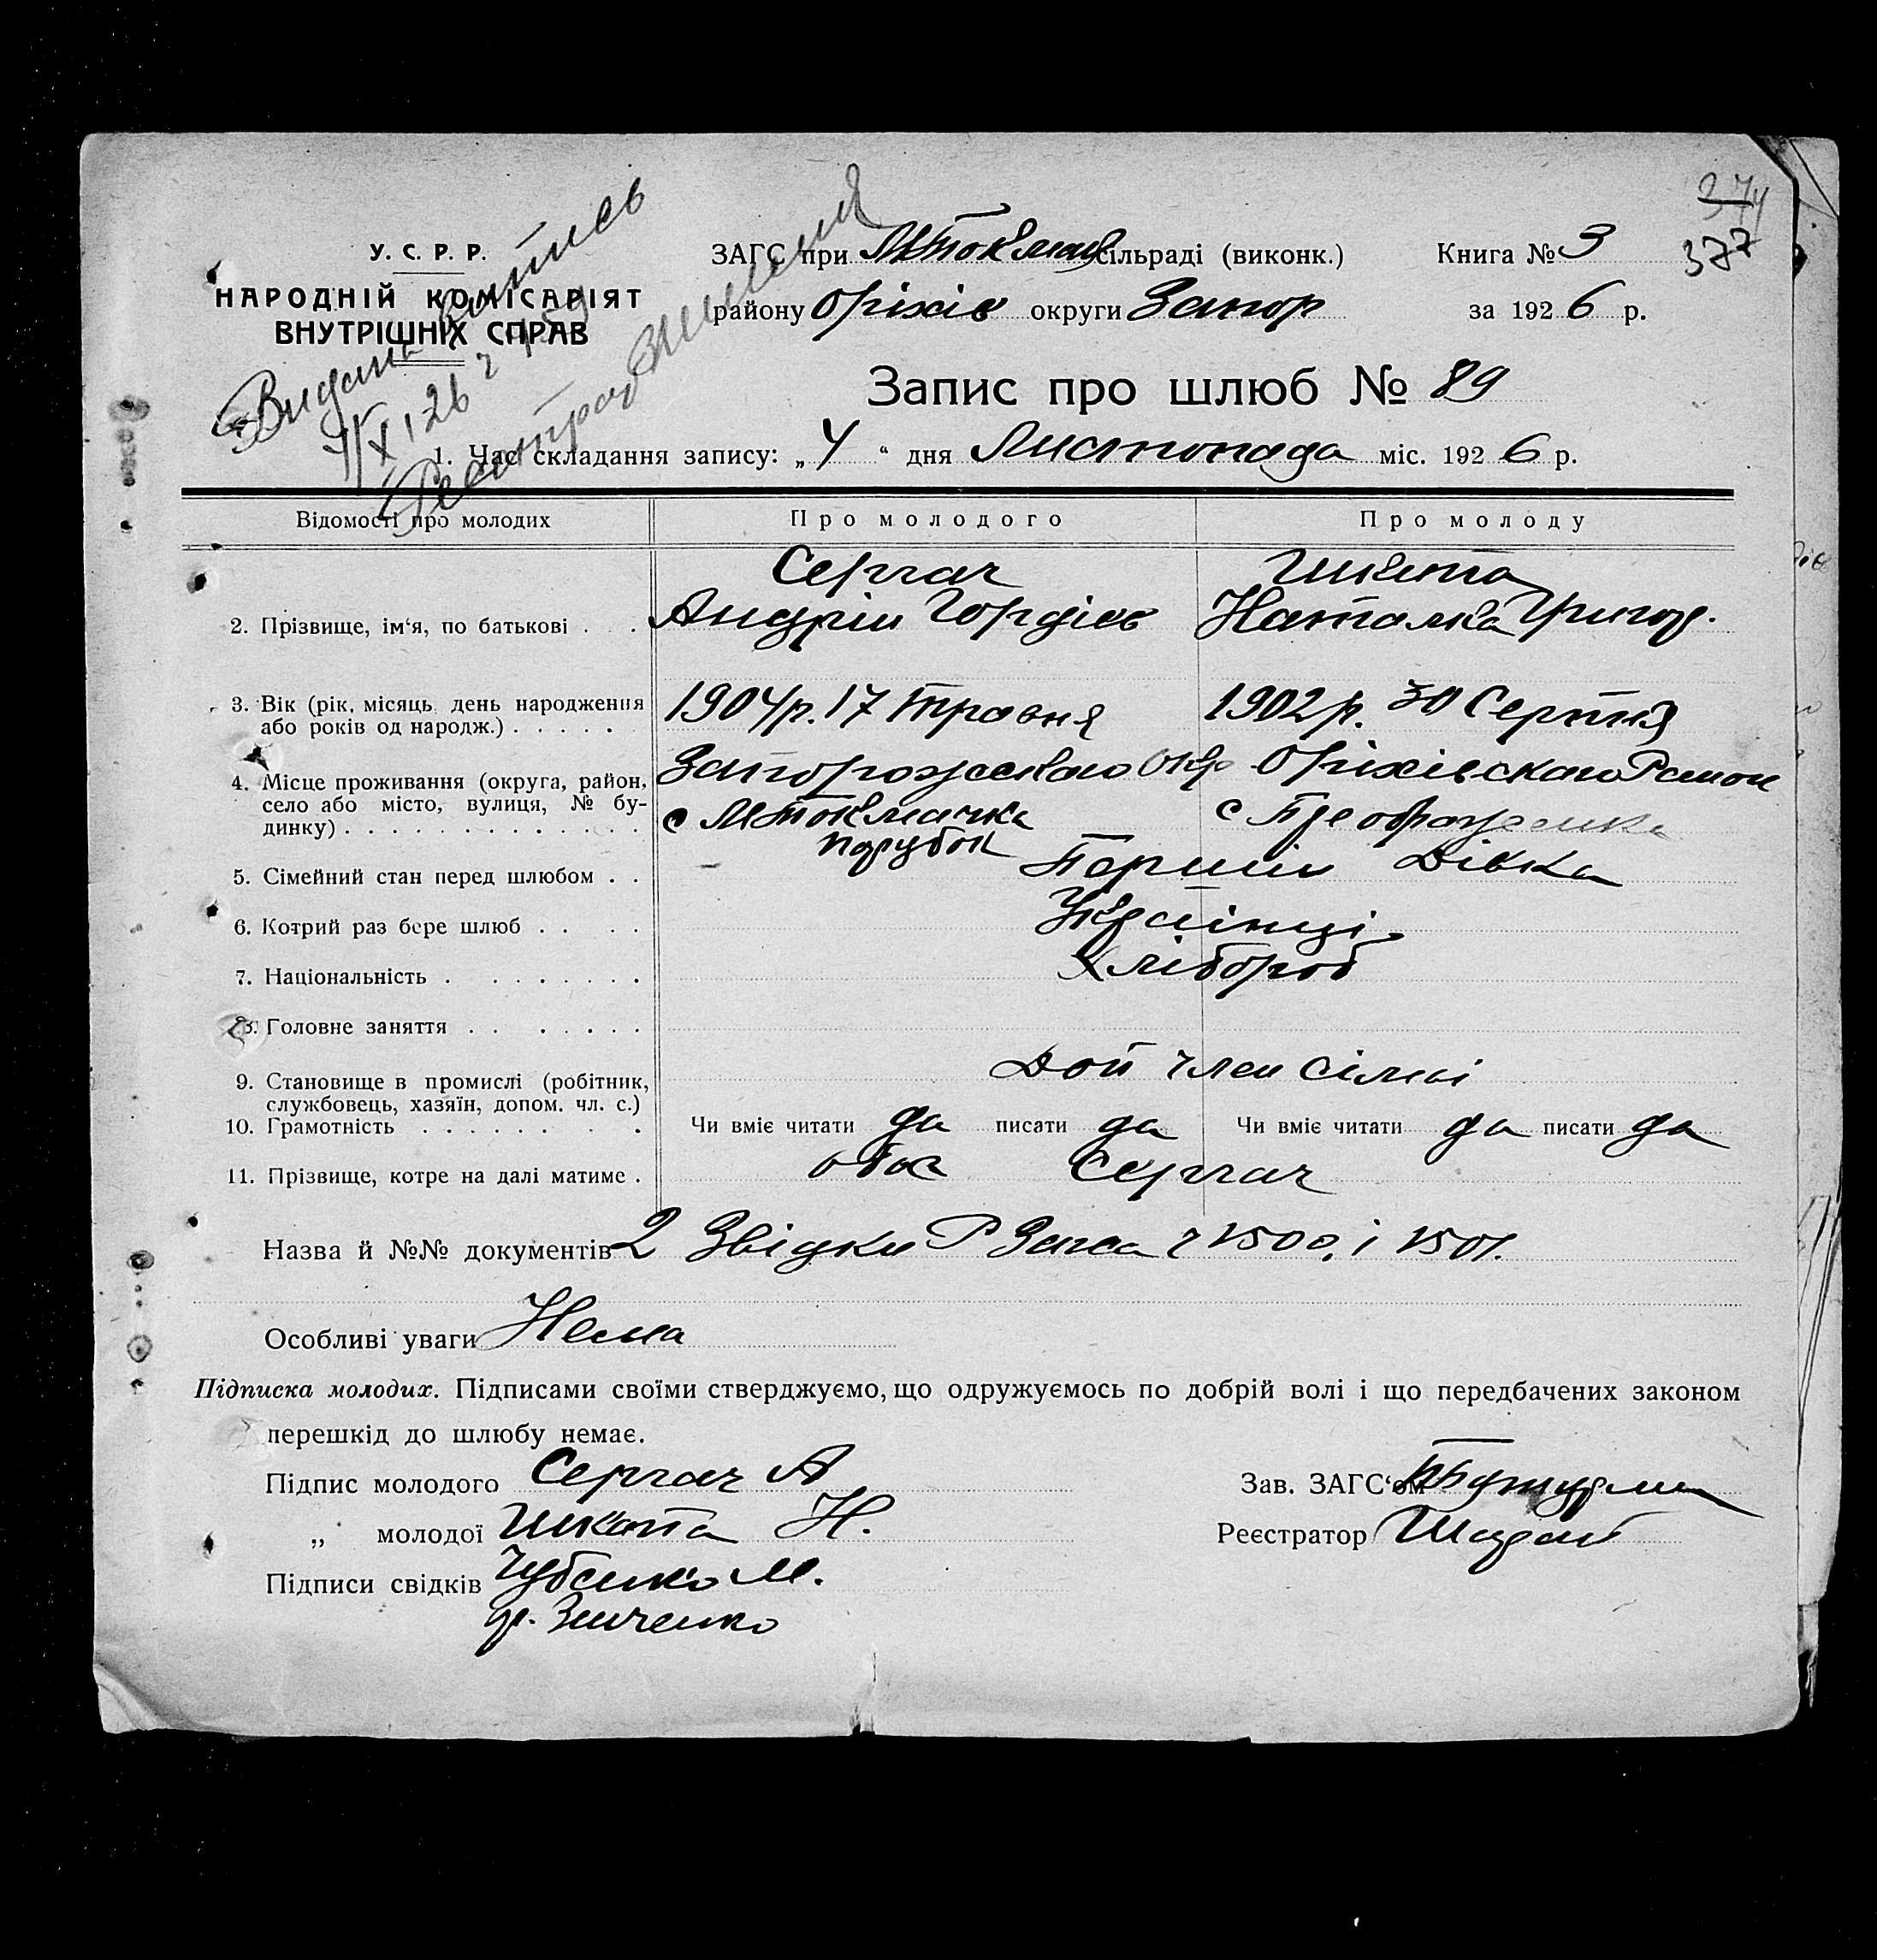 374
377
У. С. Р. Р.
НАРОДНІЙ КОМІСАРІЯТ
ВНУТРІШНІХ СПРАВ
ЗАГС при М Токмац сільраді (виконк.)
Книга № 3
району Оріхів округи Запор
за 1926 р.
Запис про шлюб № 89
1. Час складання запису: „4“ дня Листопада міс. 1926 р.
Відомості про молодих
Про молодого
Про молоду
2. Прізвище, ім‘я, по батькові . .
Сергач
Андрій Гордієв
Шкапа
Наталка Григор.
3. Вік (рік, місяць день народження
або років од народж.) . . . . .
1904р. 17 Травня
1902р. 30 Серпня
4. Місце проживання (округа, район,
село або місто, вулиця, № бу-
динку) . . . . . . . . . . . . .
Запорожскаго Окр Оріхівскаго Район
с М Токмачка
с Преображенка
5. Сімейний стан перед шлюбом . .
парубок
Дівка
6. Котрий раз бере шлюб . . . .
Перший
7. Національність . . . . . . . .
Українці
8. Головне заняття . . . . . . .
Хлібороб
9. Становище в промислі (робітник,
службовець, хазяїн, допом. чл. с.)
Доп член сімьі
10. Грамотність . . . . . . . .
Чи вміє читати да писати да
Чи вміє читати да писати да
11. Прізвище, котре на далі матиме .
обоє Сергач
Назва й №№ документів 2 Звідки Р Загса ч 1500, і 1501.
Особливі уваги Нема
Підписка молодих. Підписами своїми стверджуємо, що одружуємось по добрій волі і що передбачених законом
перешкід до шлюбу немає.
Підпис молодого Сергач А
Зав. ЗАГС‘ом
„ молодої Шкапа Н.
Реєстратор
Підписи свідків Чубенко М.
Зинченко